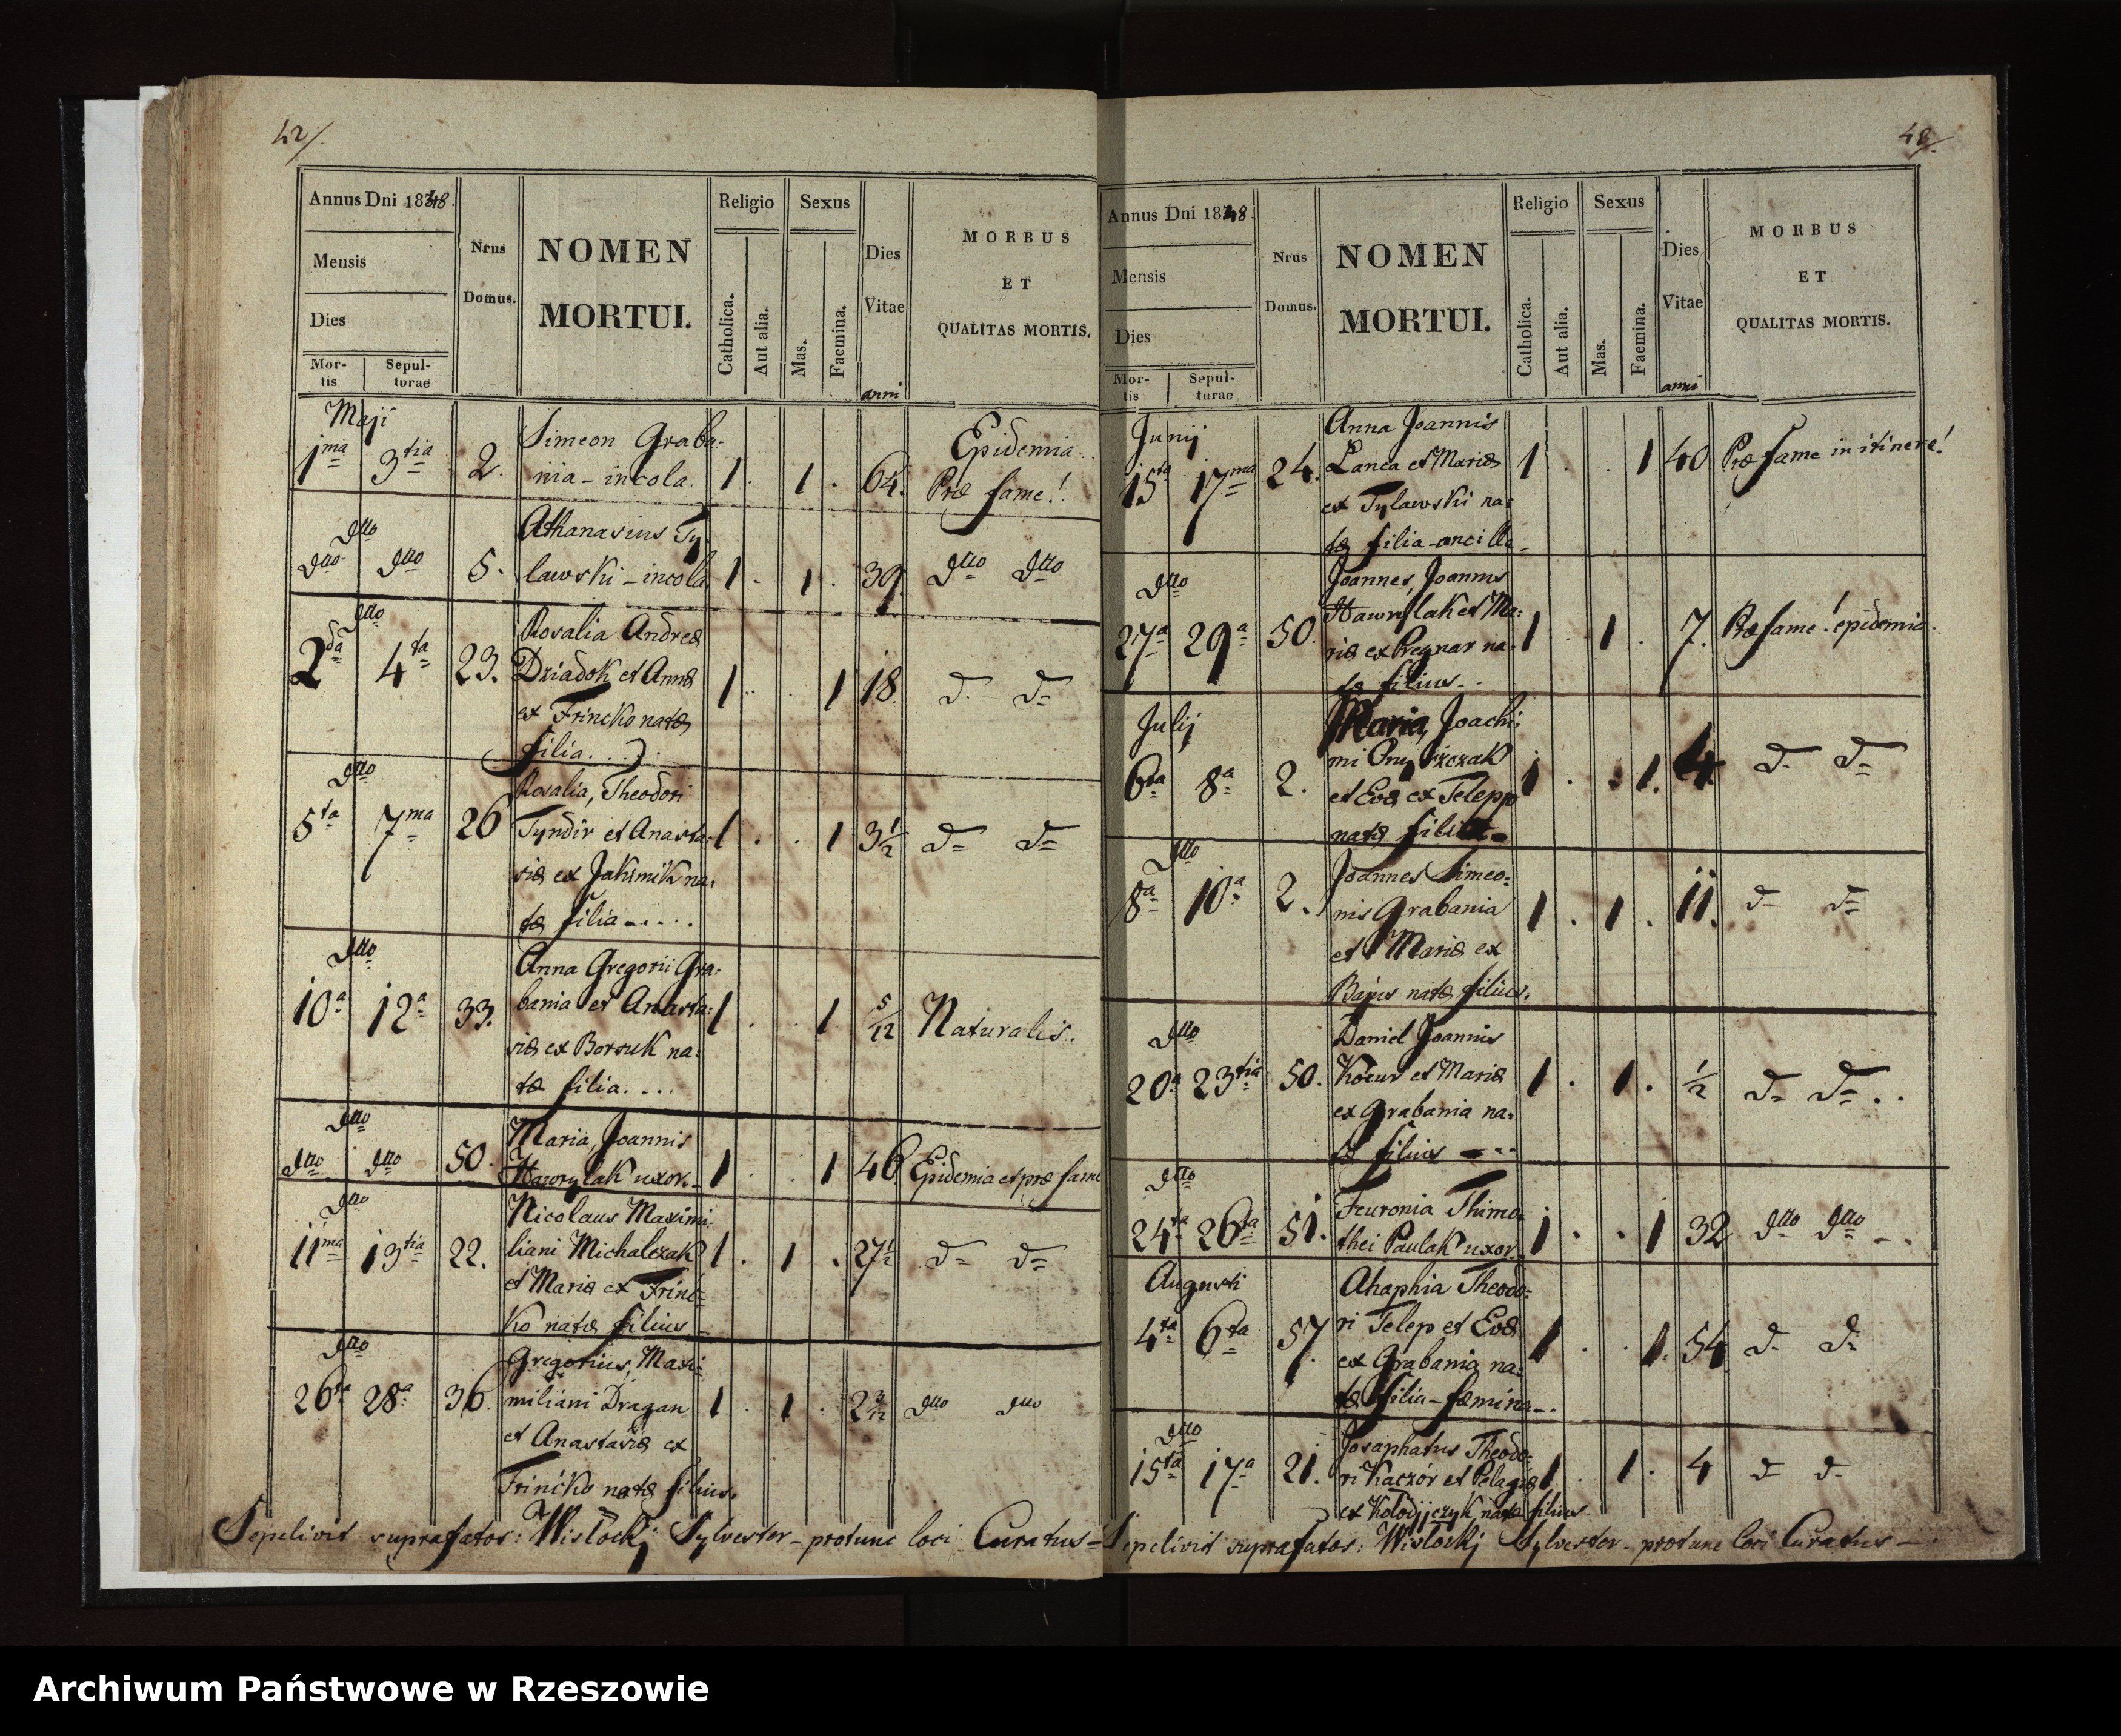 42/.
Annus Dni 1848.
Mensis
Dies
Mor-
tis
Sepul-
turae
Nrus
Domus.
NOMEN
MORTUI.
Religio
Catholica.
Aut alia.
Sexus
Mas.
Faemina.
Dies
Vitae
anni
MORBUS
ET
QUALITAS MORTIS.
Maji
1ma 3tia 2. Simeon Graba-
nia - incola. 1 . 1 . 64. Epidemia
Præ fame!
dtto
dtto dtto 5. Athanasius Ty
lawski - incola 1 . 1 . 39. dtto dtto
dtto
2da 4ta 23. Rosalia Andreæ
Dziadok et Annæ
ex Frincko natæ
filia... 1 . . 1 18 d. d=
dtto
5ta 7ma 26 Rosalia, Theodori
Tyndir et Anasta-
siæ ex Jakimik na-
tæ filia - .... 1 . . 1 3 1/2 d= d=
dtto
10a 12a 33. Anna Gregorii Gra-
bania et Anasta-
siæ ex Borsuk na-
tæ filia.... 1 . . 1 5/12 Naturalis.
dtto
dtto dtto 50. Maria, Joannis
Hawrylak uxor. 1 . . 1 46 Epidemia et præ fame
dtto
11ma 13tia 22. Nicolaus Maximi-
liani Michalczak
et Mariæ ex Frinc-
ko natæ filius 1 . 1 . 27 1/2 d= d=
dtto
26ta 28a 36. Gregorius, Maxi-
miliani Dragan
et Anastasiæ ex
Frincko natæ filius. 1 . 1 . 2 3/12 dtto dtto
Sepelivit suprafatos: Wisłockj Sylvester - protunc loci Curatus =
48/.
Annus Dni 1848.
Mensis
Dies
Mor-
tis
Sepul-
turae
Nrus
Domus.
NOMEN
MORTUI.
Religio
Catholica.
Aut alia.
Sexus
Mas.
Faemina.
Dies
Vitae
anni
MORBUS
ET
QUALITAS MORTIS.
Junij
15ta 17ma 24. Anna Joannis
Lanca et Mariæ
ex Tylawski na-
tæ filia - ancilla - 1 . . 1 40 Præ fame in itinere!
dtto
27a 29a 50. Joannes, Joannis
Hawrylak et Ma-
riæ ex Pregnar na-
tæ filius - . 1 . 1 . 7. Præ fame! epidemia.
Julij
6ta 8a 2. Maria, Joachi-
mi
et Evæ ex Telepp
natæ filia 1 . . 1. 4 d. d=
dtto
8a 10a 2. Joannes Simeo-
nis Grabania
et Mariæ ex
Bajus natæ filius. 1 . 1 . 11. d= d=
dtto
20a 23tia 50. Daniel Joannis
Kocur et Mariæ
ex Grabania na-
tæ filius - - - 1 . 1 . 1/2 d= d= . .
dtto
24ta 26ta 51. Feuronia Thimo-
thei Paulak uxor 1 . . 1 32 dtto dtto - .
Augusti
4ta 6ta 57. Ahaphia Theodo-
ri Telep et Evæ
ex Grabania na-
tæ filia - fæmina - . 1 . . 1. 54 d. d.
dtto
15ta 17a 21. Josaphatus Theodo-
ri Kaczór et Pelagiæ
ex Kołodijczyk natæ filius. 1 . 1 . 4 d= d.
Sepelivit suprafatos: Wisłockj Sylvester - protunc loci Curatus -
Archiwum Państwowe w Rzeszowie